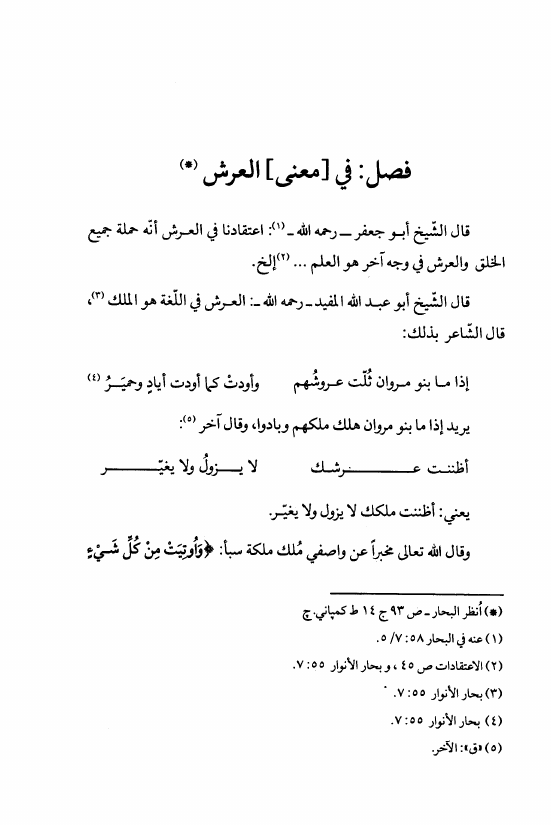 فصل: في [معنى] العرش (*)
قال الشّيخ أبـو جعفر ــ رحمه الله ــ (١): اعتقادنا في العـرش أنّه حملة جميع
الخلق والعرش في وجه آخر هو العلم ... (٢)إلخ.
قال الشّيخ أبو عبـد الله المفيد ـ رحمه الله ـ: العـرش في اللّغة هو الملك (٣)،
قال الشّاعر بذلك:
إذا مـا بنو مـروان ثُلّت عـروشُهم وأودتْ كما أودت أيادٍ وحميَـرُ (٤)
يريد إذا ما بنو مروان هلك ملكهم وبادوا، وقال آخر (٥):
أظننـت عــــرشـك لا يــزولُ ولا يغيّــر
يعني: أظننت ملكك لا يزول ولا يغيّـر.
وقال الله تعالى مخبراً عن واصفي مُلك ملكة سبأ: ﴿وَأُوتِيَتْ مِنْ كُلِّ شَـيْءٍ
(*) اُنظر البحار ـ ص ٩٣ ج ١٤ ط كمپاني. چ
(١) عنه في البحار ٥٨: ٧/ ٥.
(٢) الاعتقادات ص ٤٥ ، و بحار الأنوار ٥٥: ٧.
(٣) بحار الأنوار ٥٥: ٧.
(٤) بحار الأنوار ٥٥: ٧.
(٥) «ق»: الآخر.